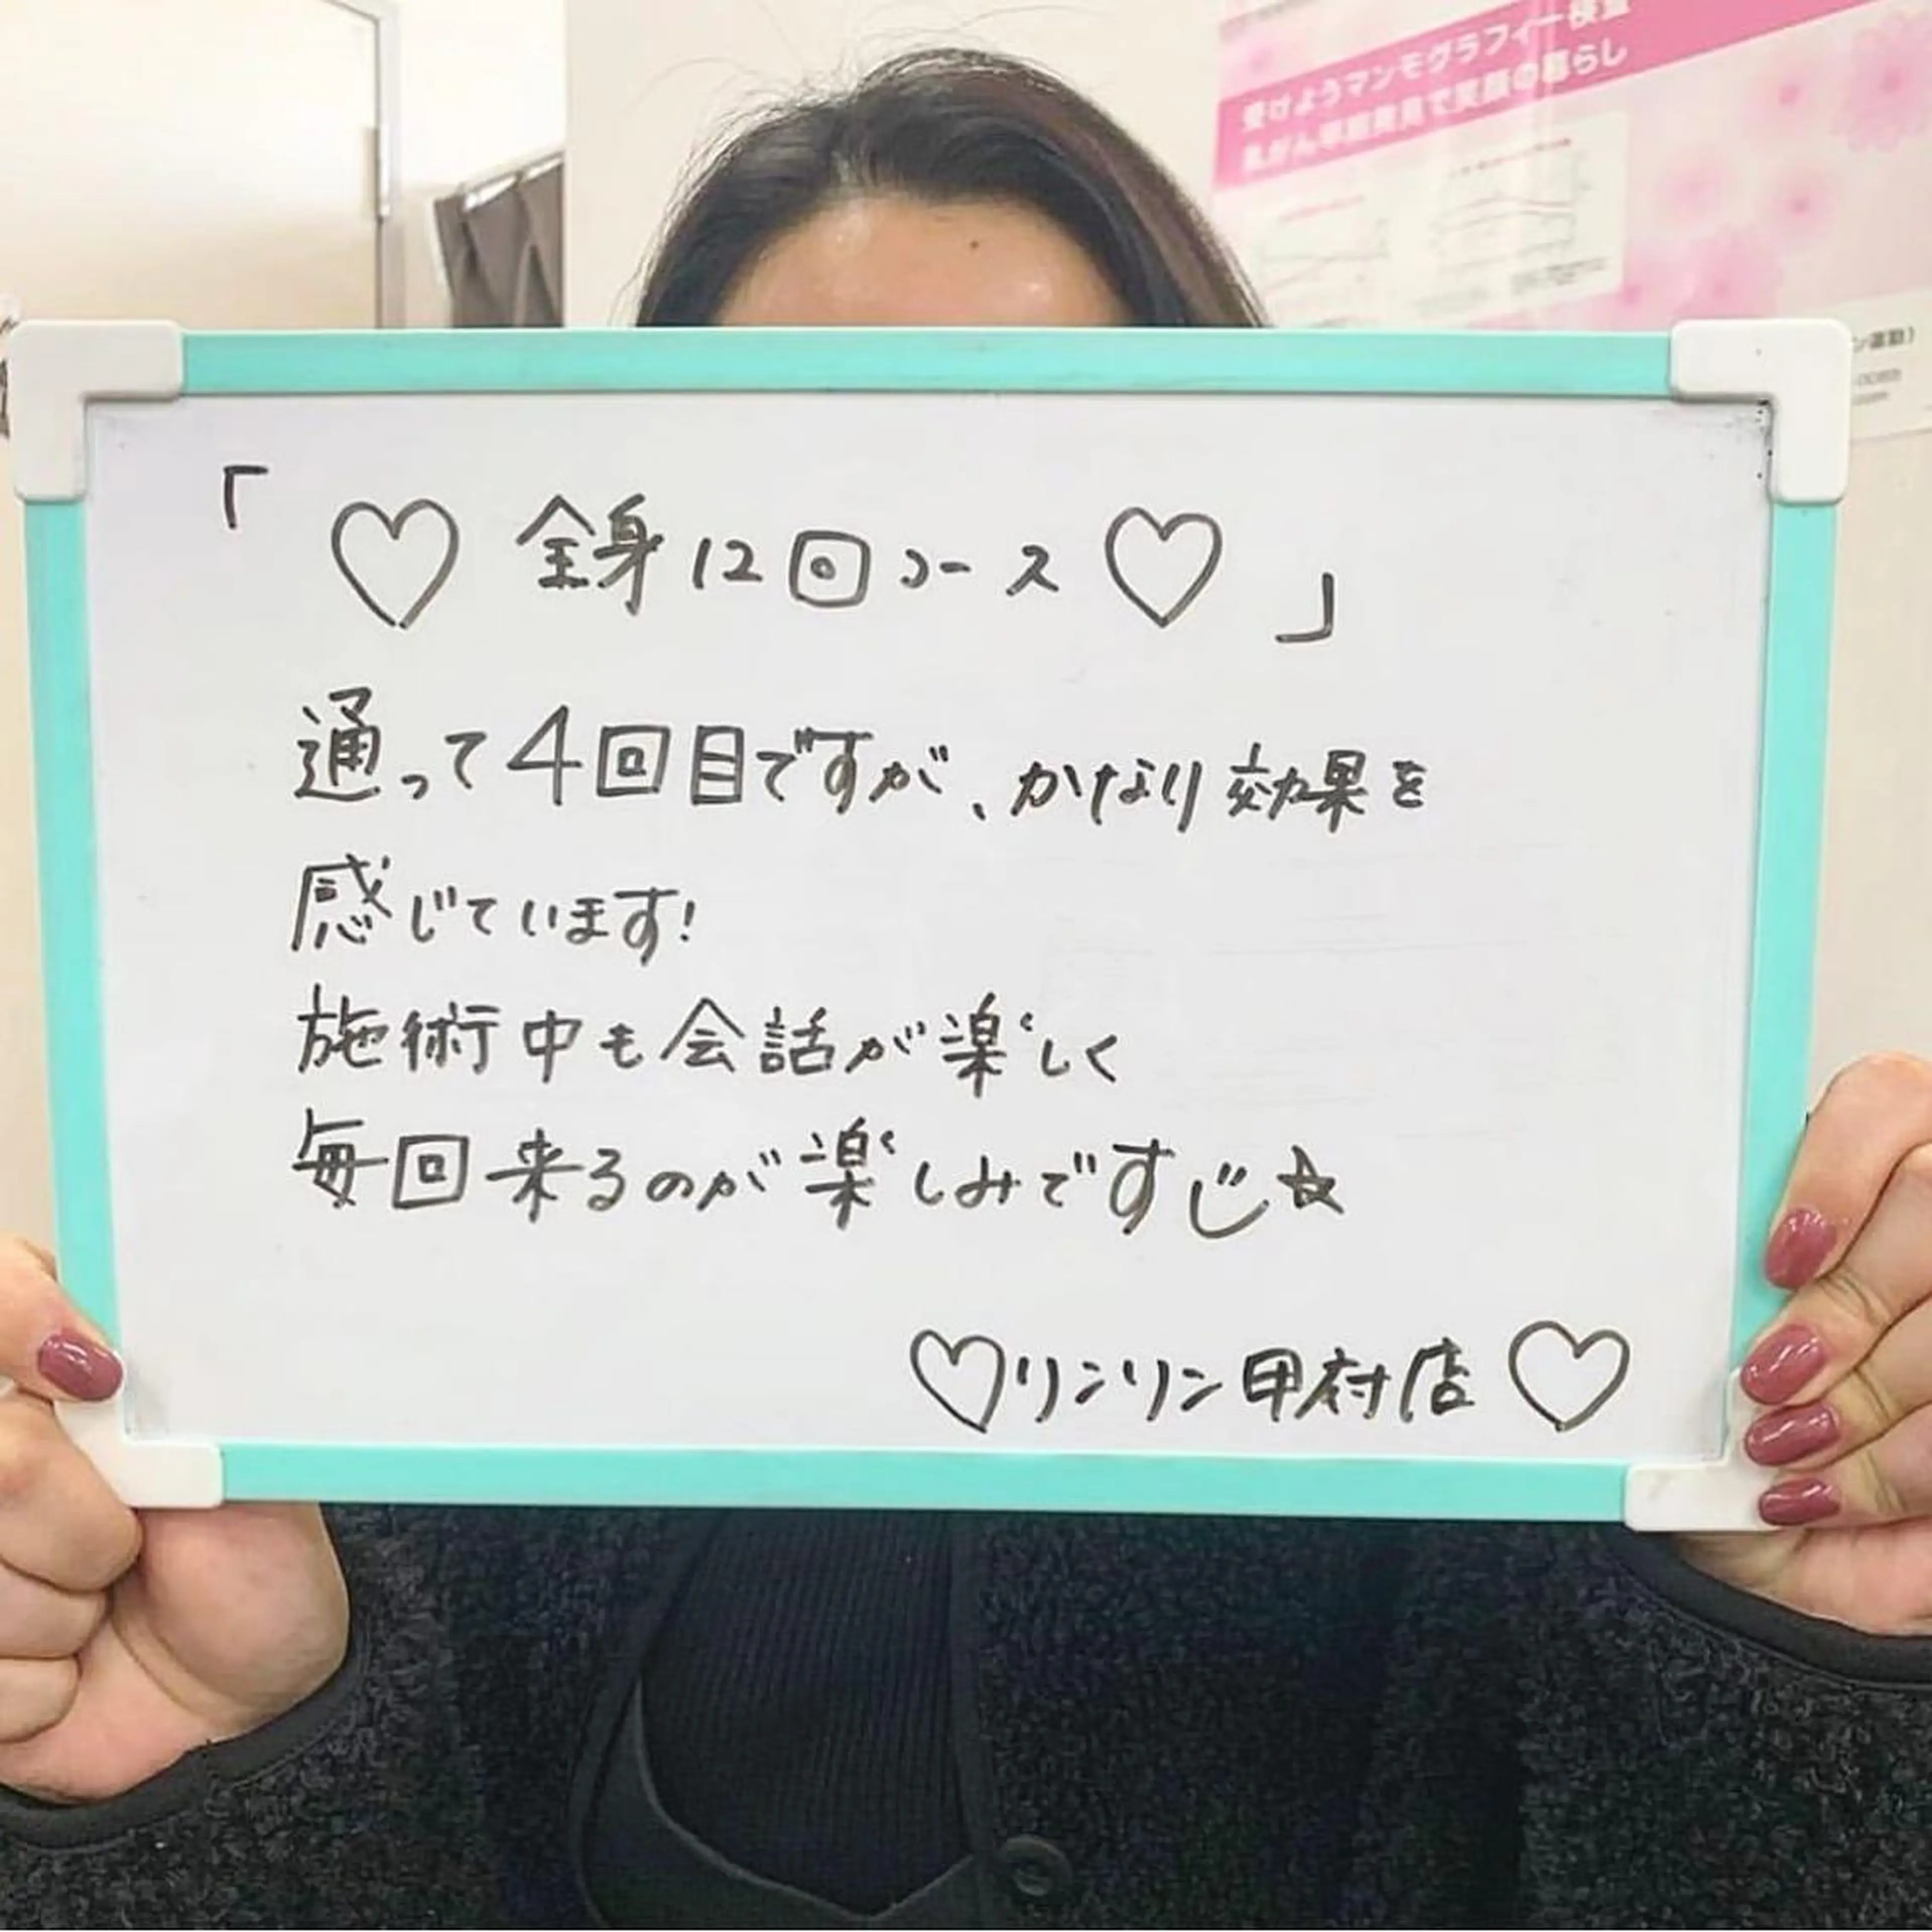 受けようマンモグラフィー検査
乳がん早期発見で笑顔の暮らし
「♡全身12回コース♡」
通って4回目ですが、かなり効果を
感じています!
施術中も会話が楽しく
毎回来るのが楽しみですジ☆
♡リンリン甲府店♡